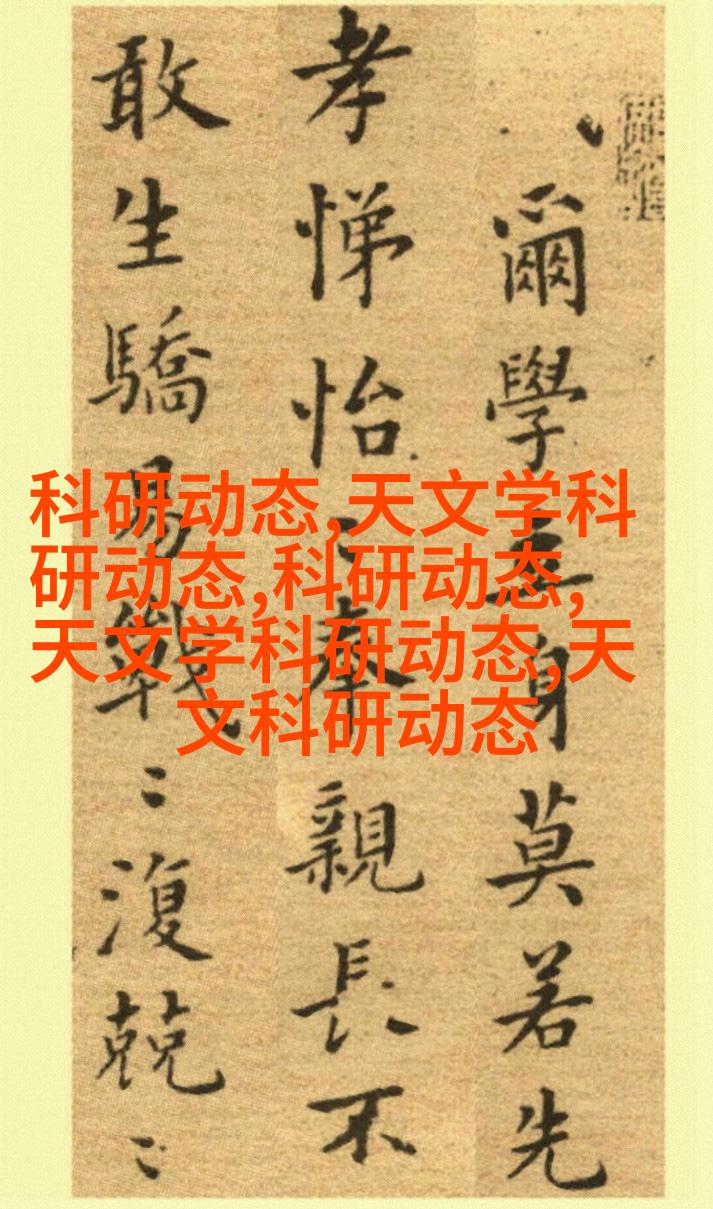 科研动态,天文学科
研动态,科研动态,
天文学科研动态,天
文科研动态
爾學立身莫若先
孝悌怡〻奉親長不
敢生驕易戰〻復兢〻